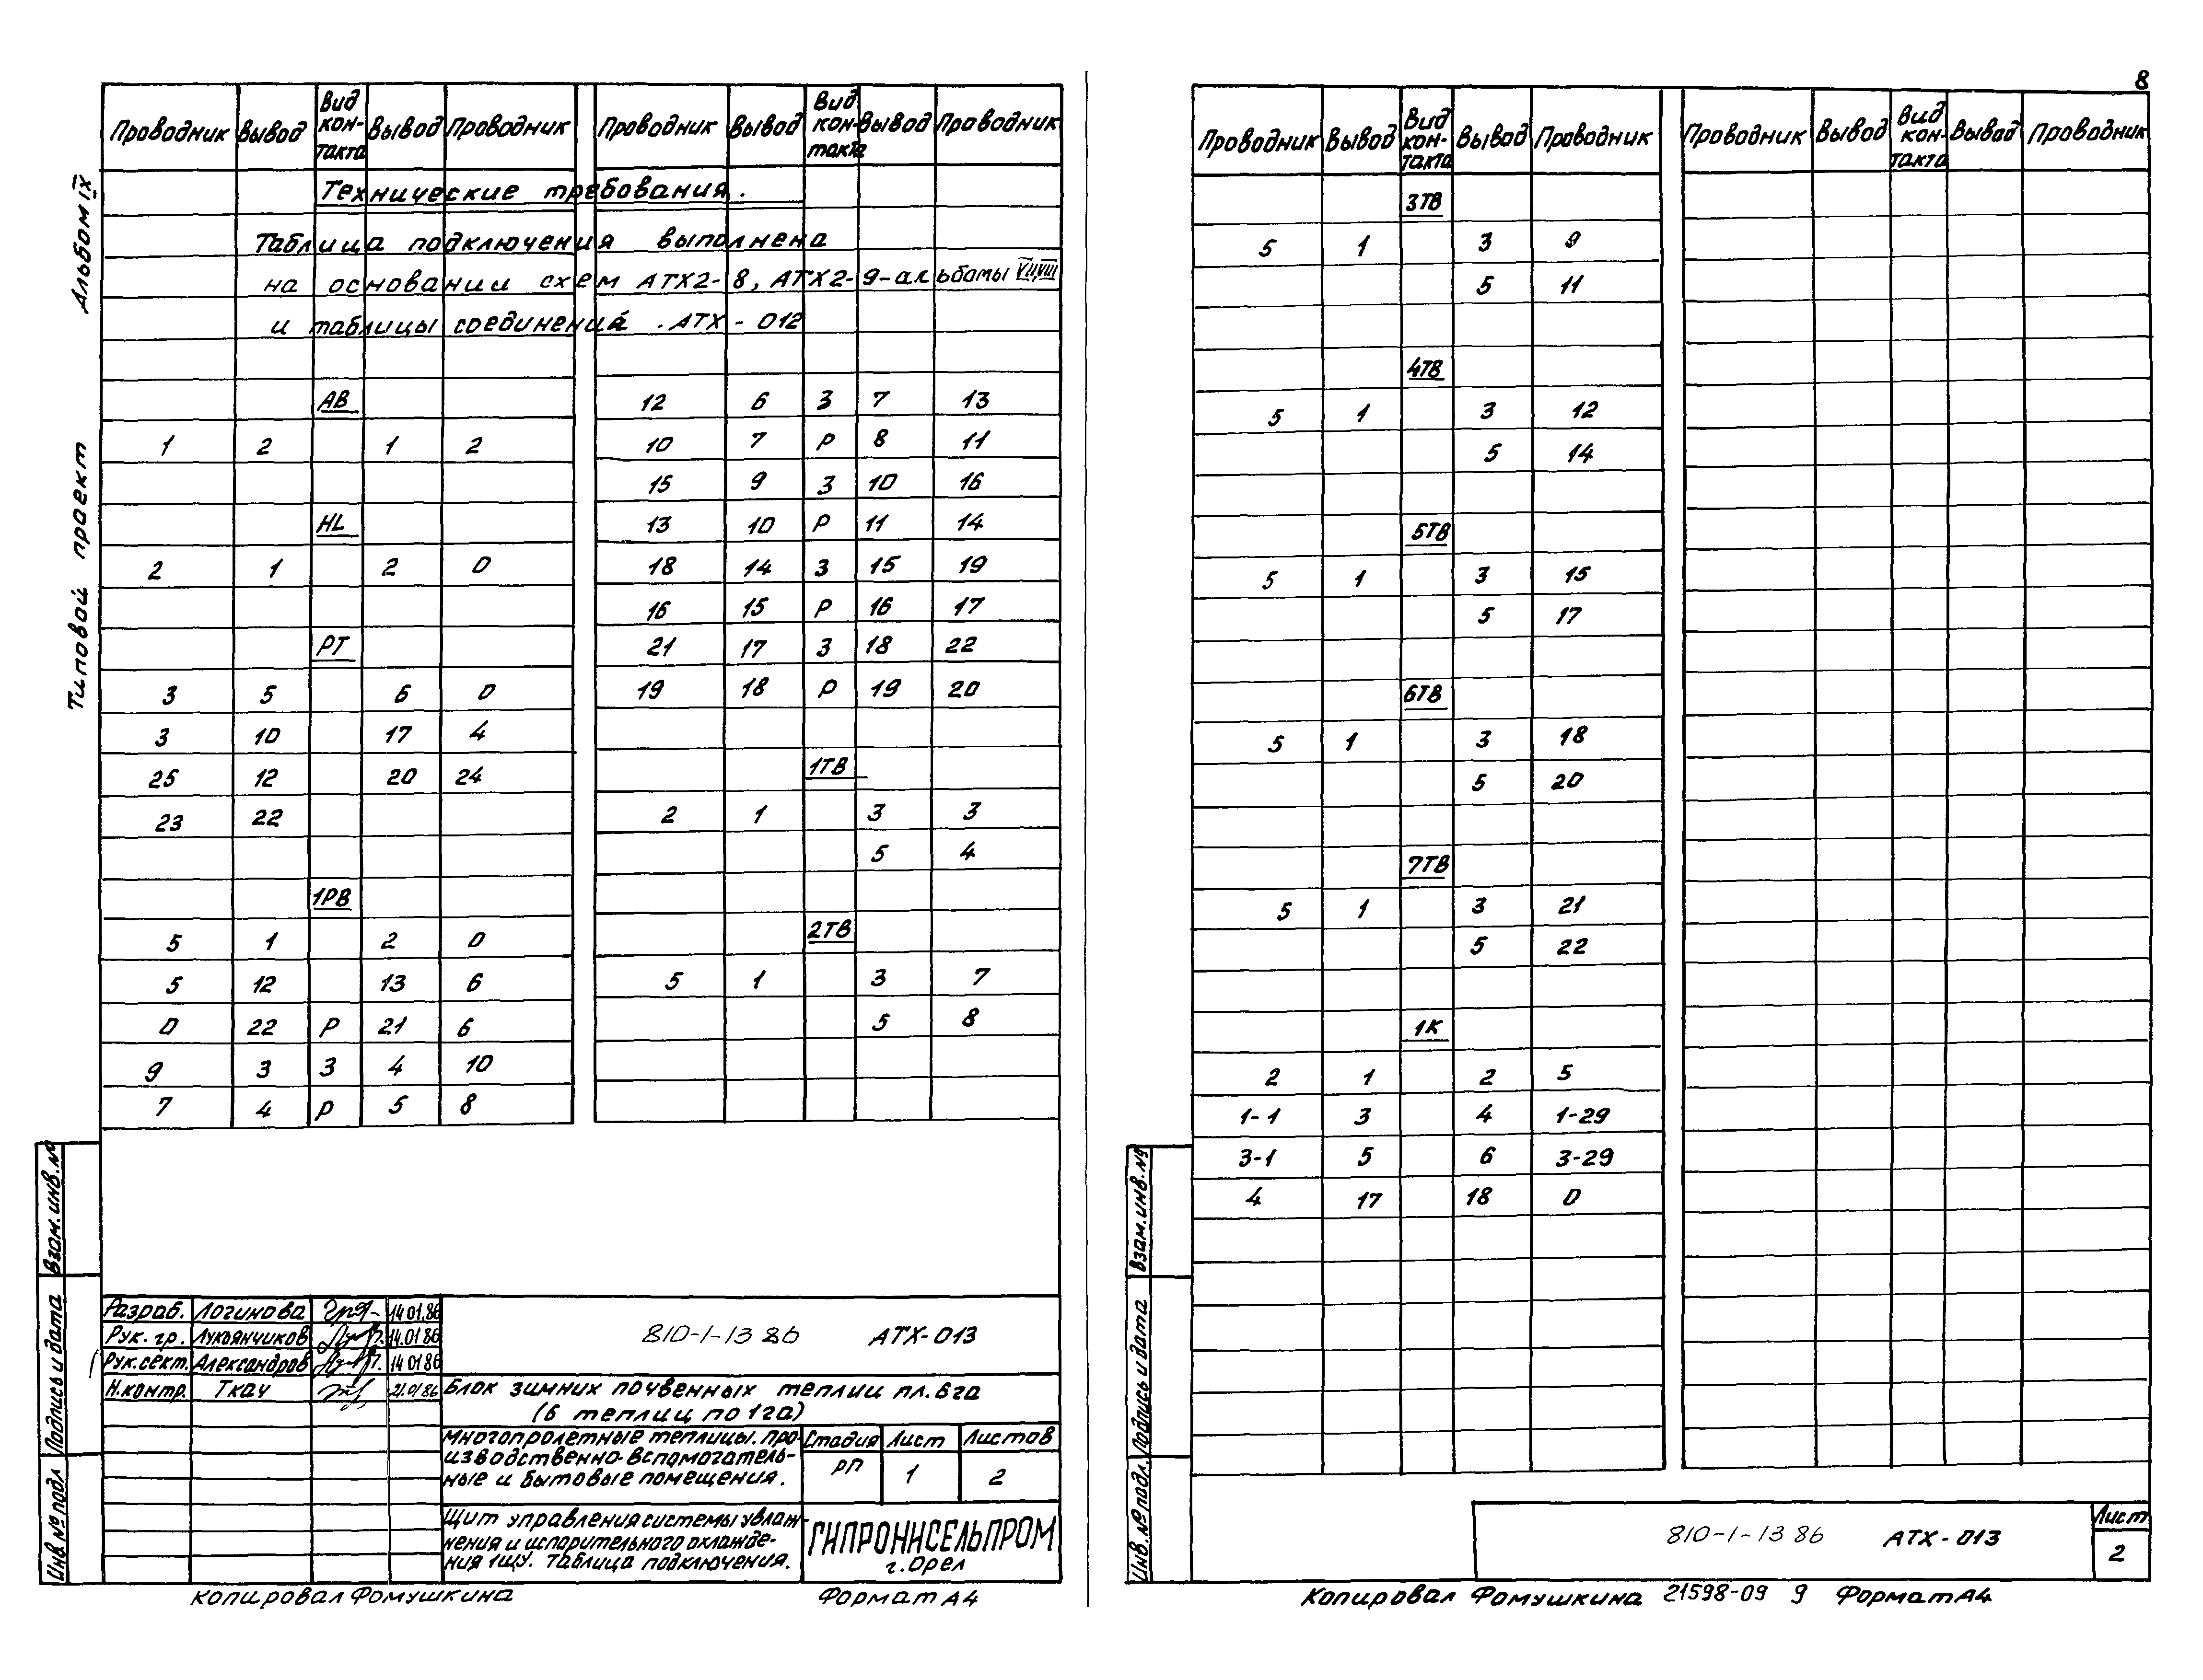 8
Альбом IX
Типовой проект
Проводник Вывод Вид кон- такта Вывод Проводник Проводник Вывод Вид кон- такта Вывод Проводник
Технические требования.
Таблица подключения выполнена
на основании схем АТХ2-8, АТХ2-9-альбомы VII,VIII
и таблицы соединений .АТХ-012
АВ
1 2 1 2
HL
2 1 2 0
РТ
3 5 6 0
3 10 17 4
25 12 20 24
23 22
1РВ
5 1 2 0
5 12 13 6
0 22 Р 21 6
9 3 З 4 10
7 4 Р 5 8
12 6 З 7 13
10 7 Р 8 11
15 9 З 10 16
13 10 Р 11 14
18 14 З 15 19
16 15 Р 16 17
21 17 З 18 22
19 18 Р 19 20
1ТВ
2 1 3 3
5 4
2ТВ
5 1 3 7
5 8
Взам.инв.№
Подпись и дата
Инв.№ подл
Разраб. Логинова 14.01.86
Рук. гр. Лукьянчиков 14.01.86
Рук.сект. Александров 14 01 86
Н.контр. Ткач 21.01.86
810-1-13 86 АТХ-013
Блок зимних почвенных теплиц пл.6га
(6 теплиц по 1га)
Многопролетные теплицы. Про-
изводственно-вспомогатель-
ные и бытовые помещения.
Стадия Лист Листов
РП 1 2
Щит управления системы увлаж-
нения и испорительного охлажде-
ния 1ЩУ. Таблица подключения.
ГИПРОНИСЕЛЬПРОМ
г.Орел
Копировал Фомушкина Формат А4
Проводник Вывод Вид кон- такта Вывод Проводник Проводник Вывод Вид кон- такта Вывод Проводник
3ТВ
5 1 3 9
5 11
4ТВ
5 1 3 12
5 14
5ТВ
5 1 3 15
5 17
6ТВ
5 1 3 18
5 20
7ТВ
5 1 3 21
5 22
1К
2 1 2 5
1-1 3 4 1-29
3-1 5 6 3-29
4 17 18 0
Взам.инв.№
Подпись и дата
Инв.№ подл.
810-1-13 86 АТХ-013
Лист
2
Копировал Фомушкина 21598-09 9 Формат А4